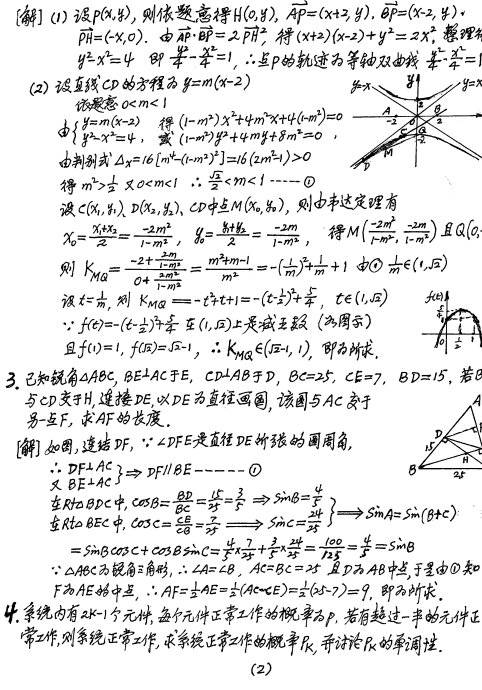 [解] (1) 设P(x,y), 则依题意得H(0,y), AP=(x+2,y). BP=(x-2,y),
PH=(-x,0). 由AP·BP=2PH², 得(x+2)(x-2)+y²=2x², 整理得
y²-x²=4 即 y²/4-x²/4=1, ∴点P的轨迹为等轴双曲线 y²/4-x²/4=1
(2) 设直线CD的方程为y=m(x-2)
依题意 0<m<1
由{y=m(x-2) 得 (1-m²)x²+4m²x-4(1+m²)=0
y²-x²=4, 或 (1-m²)y²+4my+8m²=0,
由判别式Δx=16[m⁴-(1-m²)²]=16(2m²-1)>0
得 m²>1/2 又0<m<1 ∴ √2/2<m<1 ------①
设C(x₁,y₁)、D(x₂,y₂)、CD中点M(x₀,y₀), 则由韦达定理有
x₀=(x₁+x₂)/2=-2m²/(1-m²), y₀=(y₁+y₂)/2=-2m/(1-m²), 得M(-2m²/(1-m²), -2m/(1-m²)) 且Q(0,
则 K_MQ=(-2+2m/(1-m²))/(0+2m²/(1-m²))=(m²+m-1)/m²=-(1/m)²+1/m+1 由① 1/m∈(1,√2)
设t=1/m, 则 K_MQ=-t²+t+1=-(t-1/2)²+5/4, t∈(1,√2)
∵ f(t)=-(t-1/2)²+5/4 在(1,√2)上是减函数 (如图示)
且f(1)=1, f(√2)=√2-1, ∴K_MQ∈(√2-1,1), 即为所求.
y=-x
y=x
y
2
A
-2
0
B
2
x
C
Q
-2
D
M
f(t)
5/4
1
0
1/2
1
3. 已知锐角△ABC, BE⊥AC于E, CD⊥AB于D, BC=25, CE=7, BD=15, 若B
与CD交于H, 连接DE, 以DE为直径画圆, 该圆与AC交于
另一点F, 求AF的长度.
[解] 如图, 连结DF, ∵∠DFE是直径DE所张的圆周角,
∴ DF⊥AC
又 BE⊥AC}⇒DF∥BE------①
在Rt△BDC中, cosB=BD/BC=15/25=3/5 ⇒ sinB=4/5
在Rt△BEC中, cosC=CE/CB=7/25 ⇒ sinC=24/25}⇒sinA=sin(B+C)
=sinBcosC+cosBsinC=4/5×7/25+3/5×24/25=100/125=4/5=sinB
∵△ABC为锐角三角形, ∴∠A=∠B, AC=BC=25 且D为AB中点, 于是由①知
F为AE的中点, ∴AF=1/2AE=1/2(AC-CE)=1/2(25-7)=9, 即为所求.
A
D
15
H
B
25
4. 系统内有2K-1个元件, 每个元件正常工作的概率为p, 若有超过一半的元件正
常工作, 则系统正常工作, 求系统正常工作的概率P_K, 并讨论P_K的单调性.
(2)